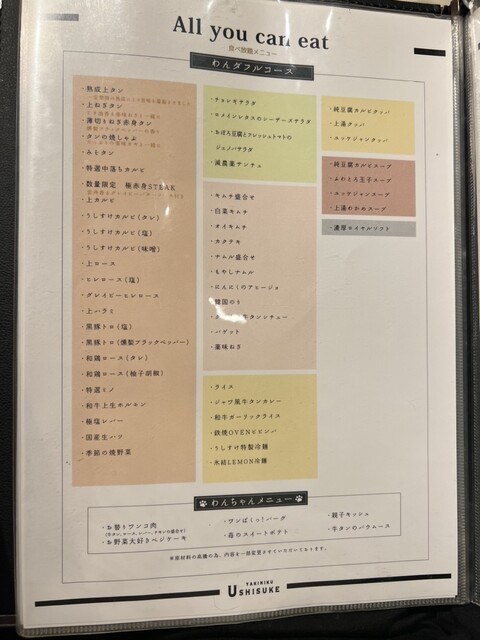 All you can eat
食べ放題メニュー
わんダフルコース
・熟成上タン
・上ねぎタン
・薄切りねぎ赤身タン
・タンの焼しゃぶ
・みそタン
・特選中落ちカルビ
・数量限定 極赤身STEAK
・上カルビ
・うしすけカルビ(タレ)
・うしすけカルビ(塩)
・うしすけカルビ(味噌)
・上ロース
・ヒレロース(塩)
・グレイビーヒレロース
・上ハラミ
・黒豚トロ(塩)
・黒豚トロ(燻製ブラックペッパー)
・和鶏ロース(タレ)
・和鶏ロース(柚子胡椒)
・特選ミノ
・和牛上生ホルモン
・極塩レバー
・国産生ハツ
・季節の焼野菜
・チョレギサラダ
・ロメインレタスのシーザーズサラダ
・おぼろ豆腐とフレッシュトマトの
ジェノバサラダ
・減農薬サンチュ
・キムチ盛合せ
・白菜キムチ
・オイキムチ
・カクテキ
・ナムル盛合せ
・もやしナムル
・にんにくのアヒージョ
・韓国のり
牛タンシチュー
・バゲット
・薬味ねぎ
・ライス
・ジャワ風牛タンカレー
・和牛ガーリックライス
・鉄焼OVENビビンバ
・うしすけ特製冷麺
・氷結LEMON冷麺
・純豆腐カルビクッパ
・上湯クッパ
・ユッケジャンクッパ
・純豆腐カルビスープ
・ふわとろ玉子スープ
・ユッケジャンスープ
・上湯わかめスープ
・濃厚ロイヤルソフト
わんちゃんメニュー
・お替りワンコ肉
・お野菜大好きベジケーキ
・ワンぱくっ!バーグ
・苺のスイートポテト
・親子キッシュ
・牛タンのババロムース
※原材料の高騰の為、内容を一部変更させていただいております。
YAKINIKU
USHISUKE